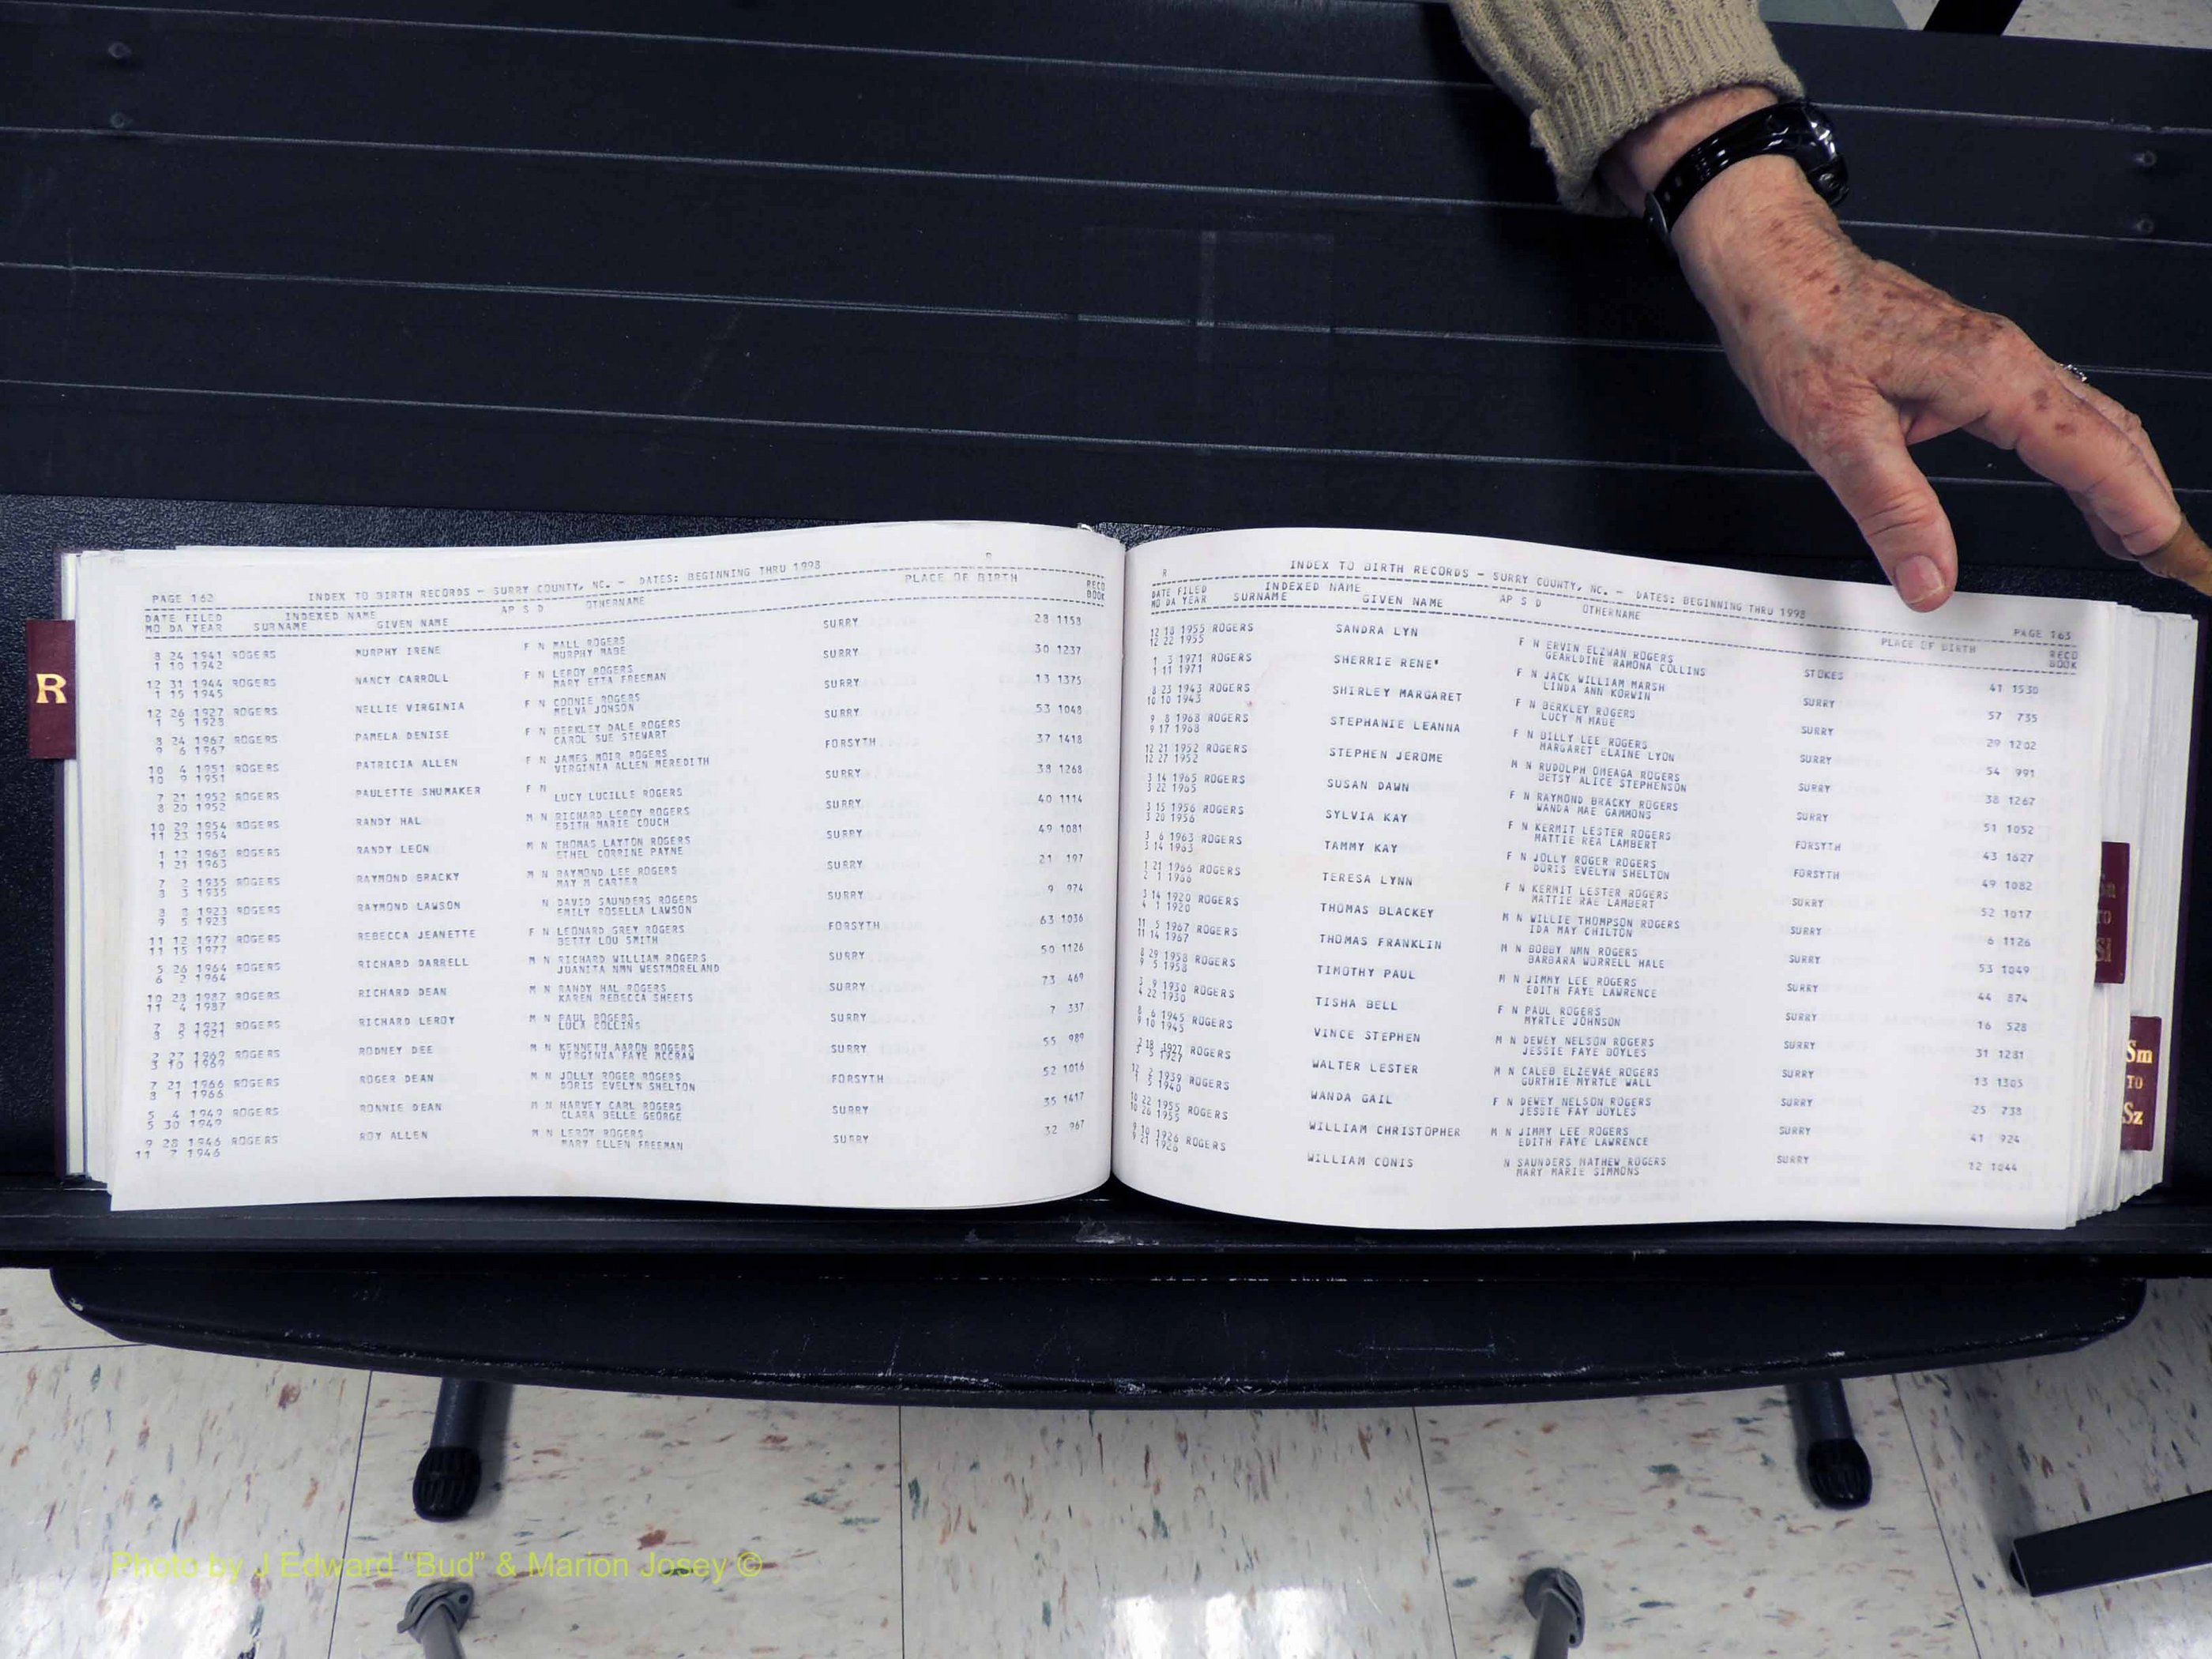 R
R
PAGE 162 INDEX TO BIRTH RECORDS - SURRY COUNTY, NC. - DATES: BEGINNING THRU 1998
DATE FILED INDEXED NAME AP S D OTHERNAME PLACE OF BIRTH RECD
MO DA YEAR SURNAME GIVEN NAME BOOK
8 24 1941 ROGERS MURPHY IRENE F N MALL ROGERS SURRY 28 1158
1 10 1942 MURPHY MABE
12 31 1944 ROGERS NANCY CARROLL F N LEROY ROGERS SURRY 30 1237
1 15 1945 MARY ETTA FREEMAN
12 26 1927 ROGERS NELLIE VIRGINIA F N COONIE ROGERS SURRY 13 1375
1 5 1928 MELVA JOHSON
8 24 1967 ROGERS PAMELA DENISE F N BERKLEY DALE ROGERS SURRY 53 1048
9 6 1967 CAROL SUE STEWART
10 4 1951 ROGERS PATRICIA ALLEN F N JAMES MOIR ROGERS FORSYTH 37 1418
10 9 1951 VIRGINIA ALLEN MEREDITH
7 21 1952 ROGERS PAULETTE SHUMAKER F N SURRY 38 1268
8 20 1952 LUCY LUCILLE ROGERS
10 29 1954 ROGERS RANDY HAL M N RICHARD LEROY ROGERS SURRY 40 1114
11 23 1954 EDITH MARIE COUCH
1 12 1963 ROGERS RANDY LEON M N THOMAS LAYTON ROGERS SURRY 49 1081
1 21 1963 ETHEL CORRINE PAYNE
7 2 1935 ROGERS RAYMOND BRACKY M N RAYMOND LEE ROGERS SURRY 21 197
8 3 1935 MAY M CARTER
8 8 1923 ROGERS RAYMOND LAWSON N DAVID SAUNDERS ROGERS SURRY 9 974
9 5 1923 EMILY ROSELLA LAWSON
11 12 1977 ROGERS REBECCA JEANETTE F N LEONARD GREY ROGERS FORSYTH 63 1036
11 15 1977 BETTY LOU SMITH
5 26 1964 ROGERS RICHARD DARRELL M N RICHARD WILLIAM ROGERS SURRY 50 1126
6 2 1964 JUANITA NMN WESTMORELAND
10 28 1987 ROGERS RICHARD DEAN M N RANDY HAL ROGERS SURRY 73 469
11 4 1987 KAREN REBECCA SHEETS
7 8 1921 ROGERS RICHARD LEROY M N PAUL ROGERS SURRY 7 337
8 5 1921 LULA COLLINS
2 27 1969 ROGERS RODNEY DEE M N KENNETH AARON ROGERS SURRY 55 989
3 10 1969 VIRGINIA FAYE MCCRAW
7 21 1966 ROGERS ROGER DEAN M N JOLLY ROGER ROGERS FORSYTH 52 1016
8 1 1966 DORIS EVELYN SHELTON
5 4 1949 ROGERS RONNIE DEAN M N HARVEY CARL ROGERS SURRY 35 1417
5 30 1949 CLARA BELLE GEORGE
9 28 1946 ROGERS ROY ALLEN M N LEROY ROGERS SURRY 32 967
11 7 1946 MARY ELLEN FREEMAN
R INDEX TO BIRTH RECORDS - SURRY COUNTY, NC. - DATES: BEGINNING THRU 1998 PAGE 163
DATE FILED INDEXED NAME AP S D OTHERNAME PLACE OF BIRTH RECD
MO DA YEAR SURNAME GIVEN NAME BOOK
12 18 1955 ROGERS SANDRA LYN F N ERVIN ELZWAN ROGERS STOKES 41 1530
12 22 1955 GEARLDINE RAMONA COLLINS
1 3 1971 ROGERS SHERRIE RENE' F N JACK WILLIAM MARSH SURRY 57 735
1 11 1971 LINDA ANN KORWIN
8 23 1943 ROGERS SHIRLEY MARGARET F N BERKLEY ROGERS SURRY 29 1202
10 10 1943 LUCY M MABE
9 8 1968 ROGERS STEPHANIE LEANNA F N BILLY LEE ROGERS SURRY 54 991
9 17 1968 MARGARET ELAINE LYON
12 21 1952 ROGERS STEPHEN JEROME M N RUDOLPH OMEAGA ROGERS SURRY 38 1267
12 27 1952 BETSY ALICE STEPHENSON
3 14 1965 ROGERS SUSAN DAWN F N RAYMOND BRACKY ROGERS SURRY 51 1052
3 22 1965 WANDA MAE GAMMONS
3 15 1956 ROGERS SYLVIA KAY F N KERMIT LESTER ROGERS FORSYTH 43 1627
3 20 1956 MATTIE REA LAMBERT
3 6 1963 ROGERS TAMMY KAY F N JOLLY ROGER ROGERS FORSYTH 49 1082
3 14 1963 DORIS EVELYN SHELTON
1 21 1966 ROGERS TERESA LYNN F N KERMIT LESTER ROGERS SURRY 52 1017
2 1 1966 MATTIE RAE LAMBERT
3 14 1920 ROGERS THOMAS BLACKEY M N WILLIE THOMPSON ROGERS SURRY 6 1126
4 1 1920 IDA MAY CHILTON
11 5 1967 ROGERS THOMAS FRANKLIN M N BOBBY NMN ROGERS SURRY 53 1049
11 14 1967 BARBARA WORRELL HALE
8 29 1958 ROGERS TIMOTHY PAUL M N JIMMY LEE ROGERS SURRY 44 874
9 5 1958 EDITH FAYE LAWRENCE
3 9 1930 ROGERS TISHA BELL F N PAUL ROGERS SURRY 16 528
4 22 1930 MYRTLE JOHNSON
8 6 1945 ROGERS VINCE STEPHEN M N DEWEY NELSON ROGERS SURRY 31 1281
9 10 1945 JESSIE FAYE BOYLES
2 18 1927 ROGERS WALTER LESTER M N CALEB ELZEVAE ROGERS SURRY 13 1303
3 5 1927 GURTHIE MYRTLE WALL
12 2 1939 ROGERS WANDA GAIL F N DEWEY NELSON ROGERS SURRY 25 738
1 5 1940 JESSIE FAY BOYLES
10 22 1955 ROGERS WILLIAM CHRISTOPHER M N JIMMY LEE ROGERS SURRY 41 924
10 26 1955 EDITH FAYE LAWRENCE
9 10 1926 ROGERS WILLIAM CONIS N SAUNDERS MATHEW ROGERS SURRY 12 1044
9 21 1926 MARY MARIE SIMMONS
TO
Sl
Sm
TO
Sz
Photo by J Edward "Bud" & Marion Josey ©